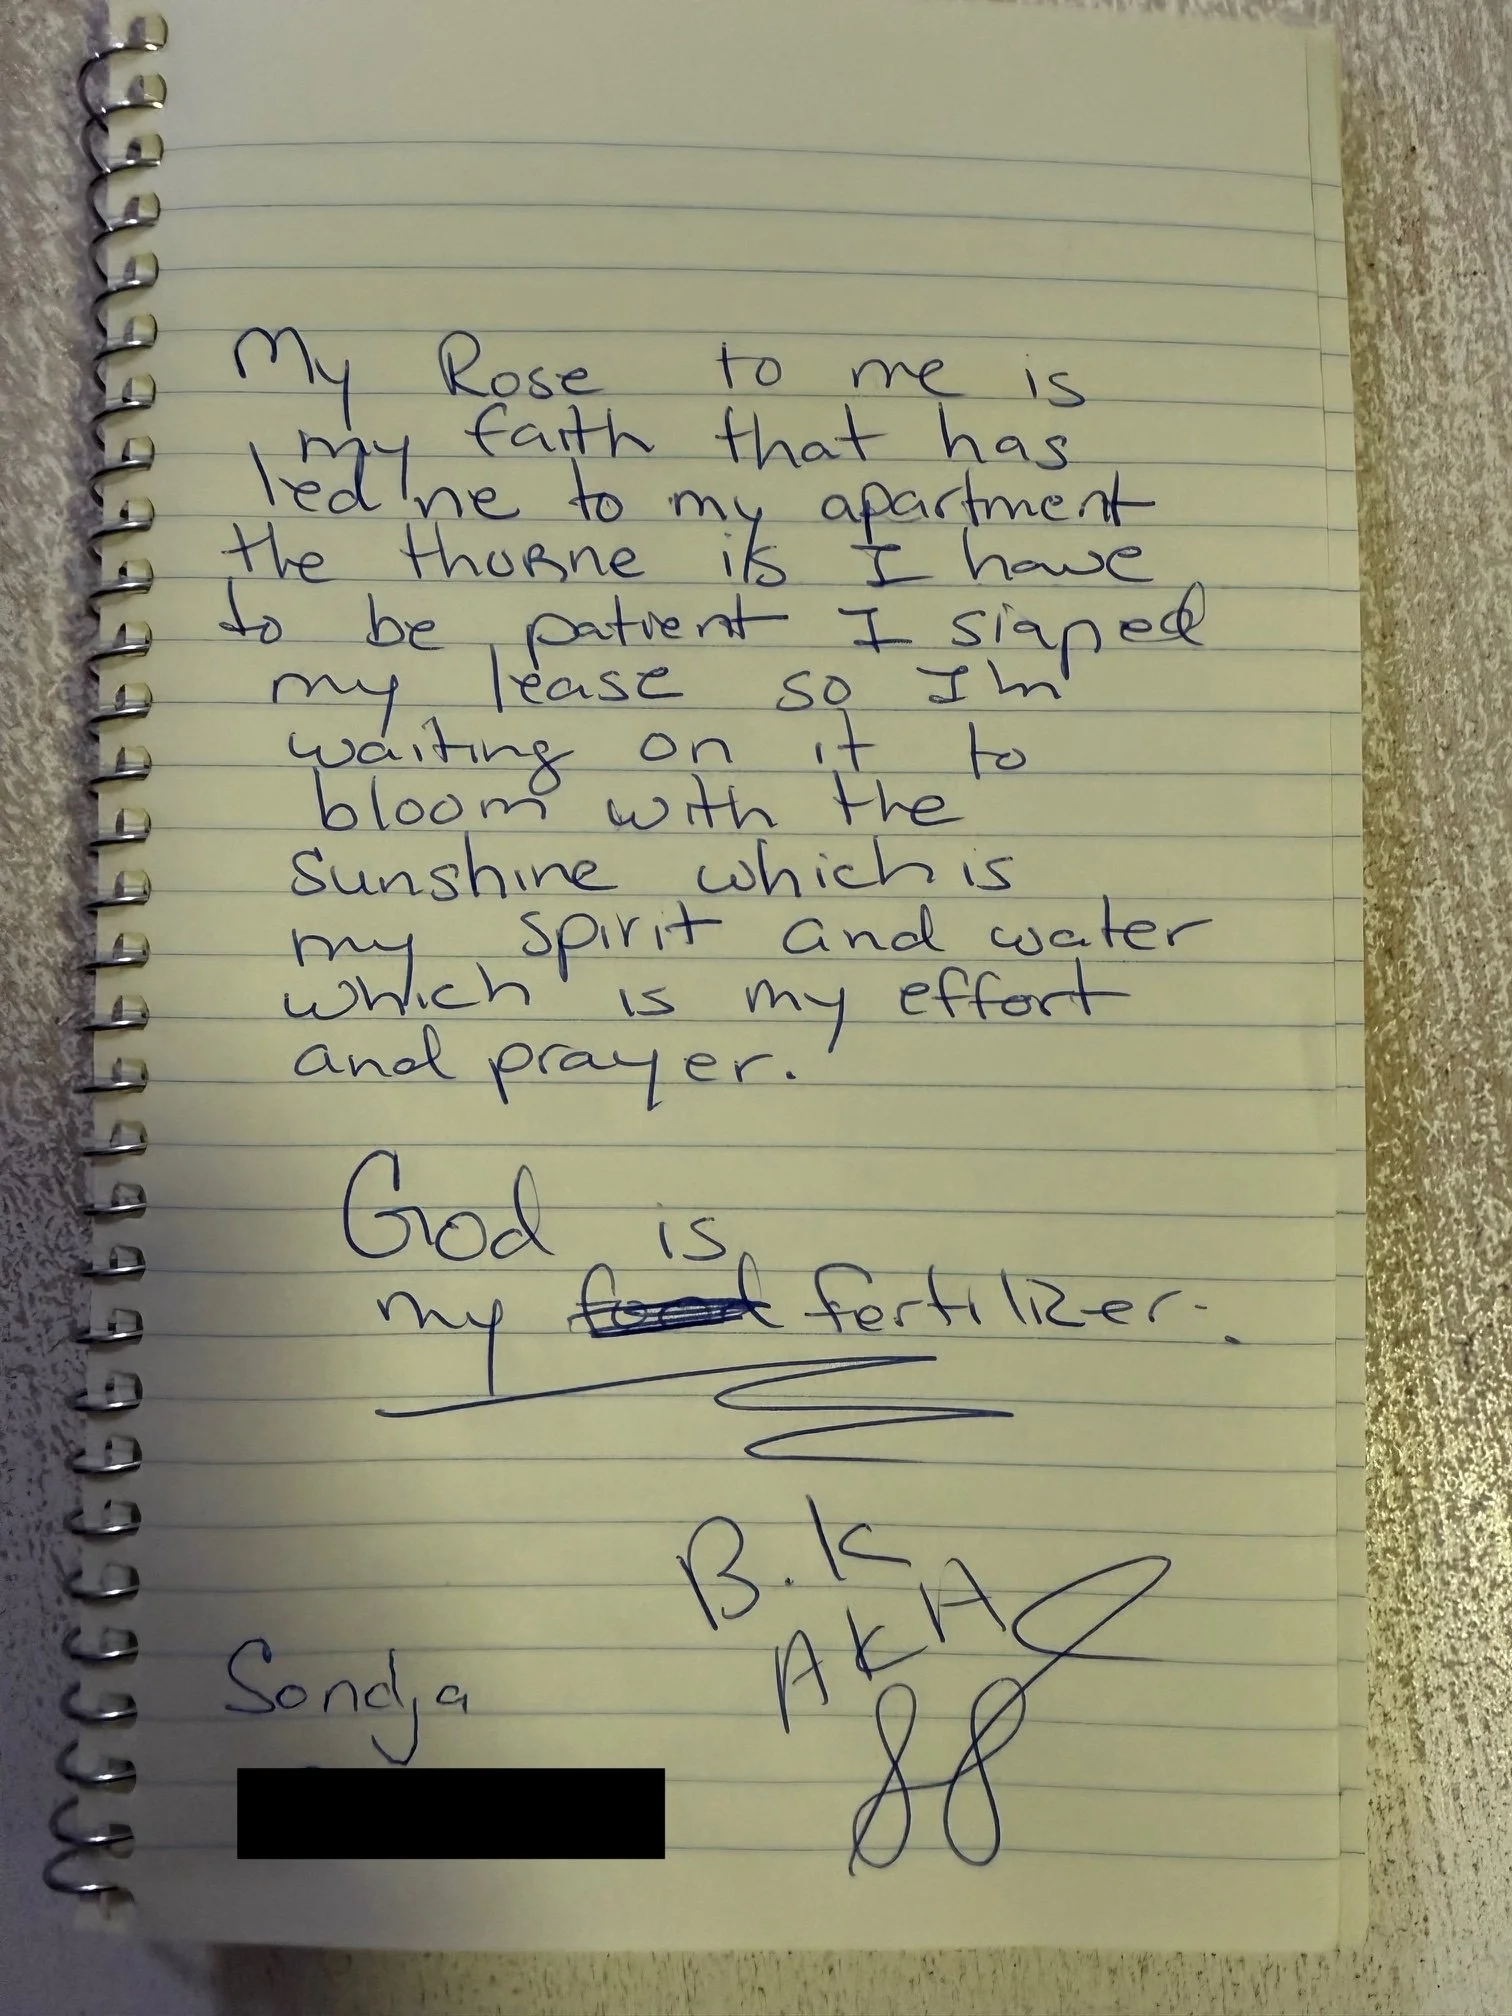 My Rose to me is
my faith that has
led me to my apartment
the thorne is I have
to be patient I signed
my lease so I'm
waiting on it to
bloom with the
sunshine which is
my spirit and water
which is my effort
and prayer.
God is
my fertilizer.
B.K
AKA
Sondja